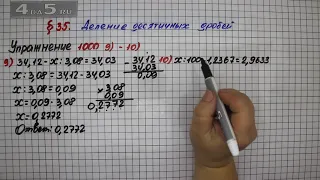 4BUDS.RU
§ 35. Деление десятичных дробей
Упражнение 1000 9) - 10)
9) 34,12 - x : 3,08 = 34,03
x : 3,08 = 34,12 - 34,03
x : 3,08 = 0,09
x = 0,09 · 3,08
x = 0,2772
Ответ: 0,2772
34,12
34,03
0,09
3,08
0,09
0,2772
10) x : 100 - 1,2367 = 2,9633